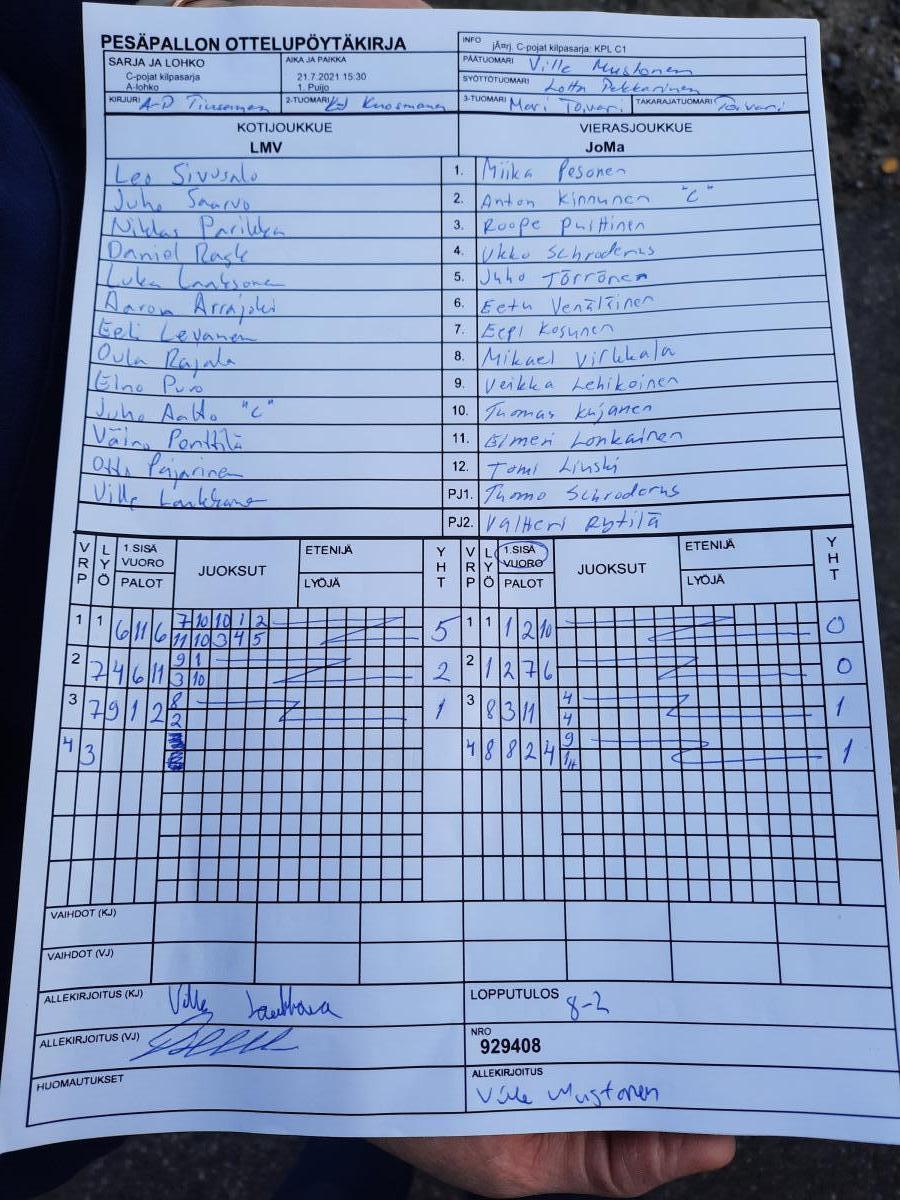 PESÄPALLON OTTELUPÖYTÄKIRJA
SARJA JA LOHKO
C-pojat kilpasarja
A-lohko
AIKA JA PAIKKA
21.7.2021 15:30
1. Puijo
INFO jÄ¤rj. C-pojat kilpasarja: KPL C1
PÄÄTUOMARI Ville Mustonen
SYÖTTÖTUOMARI Lotta Pekkarinen
KIRJURI A-P
2-TUOMARI Kuosmanen
3-TUOMARI Mari Toivari
TAKARAJATUOMARI Toivari
KOTIJOUKKUE
LMV
VIERASJOUKKUE
JoMa
Leo Sivusalo 1. Miika Pesonen
Juho Saarvo 2. Anton Kinnunen "C"
Niklas Parikka 3. Roope Purttinen
Daniel 4. Ukko Schroderus
Luka Laaksonen 5. Juho Törrönen
Aaron 6. Eetu Venäläinen
Eeli Levanen 7. Eepi Kosunen
Oula Rajala 8. Mikael Virkkala
Eino Puro 9. Veikka Lehikoinen
Juho Aalto "C" 10. Thomas Kujanen
Väinö Penttilä 11. Elmeri Lonkainen
Otto Pajarinen 12. Tomi Linski
Ville PJ1. Tuomo Schroderus
PJ2. Valtteri Rytilä
VRP LYÖ 1.SISÄ VUORO PALOT JUOKSUT ETENIJÄ LYÖJÄ YHT VRP LYÖ 1.SISÄ VUORO PALOT JUOKSUT ETENIJÄ LYÖJÄ YHT
1 1 6 11 6 7 10 10 1 2 5 1 1 1 2 10 0
11 10 3 4 5
2 7 4 6 11 9 1 2 2 1 2 7 6 0
3 10
3 7 9 1 2 8 1 3 8 3 11 4 1
2 4
4 3 4 8 8 2 4 9 1
VAIHDOT (KJ)
VAIHDOT (VJ)
ALLEKIRJOITUS (KJ) Ville
LOPPUTULOS 8-2
ALLEKIRJOITUS (VJ)
NRO
929408
HUOMAUTUKSET
ALLEKIRJOITUS
Ville Mustonen